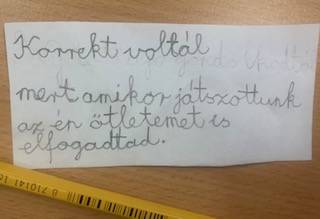 Korrekt voltál
mert amikor játszottunk
az én ötletemet is
elfogadtad.
8 710141 1